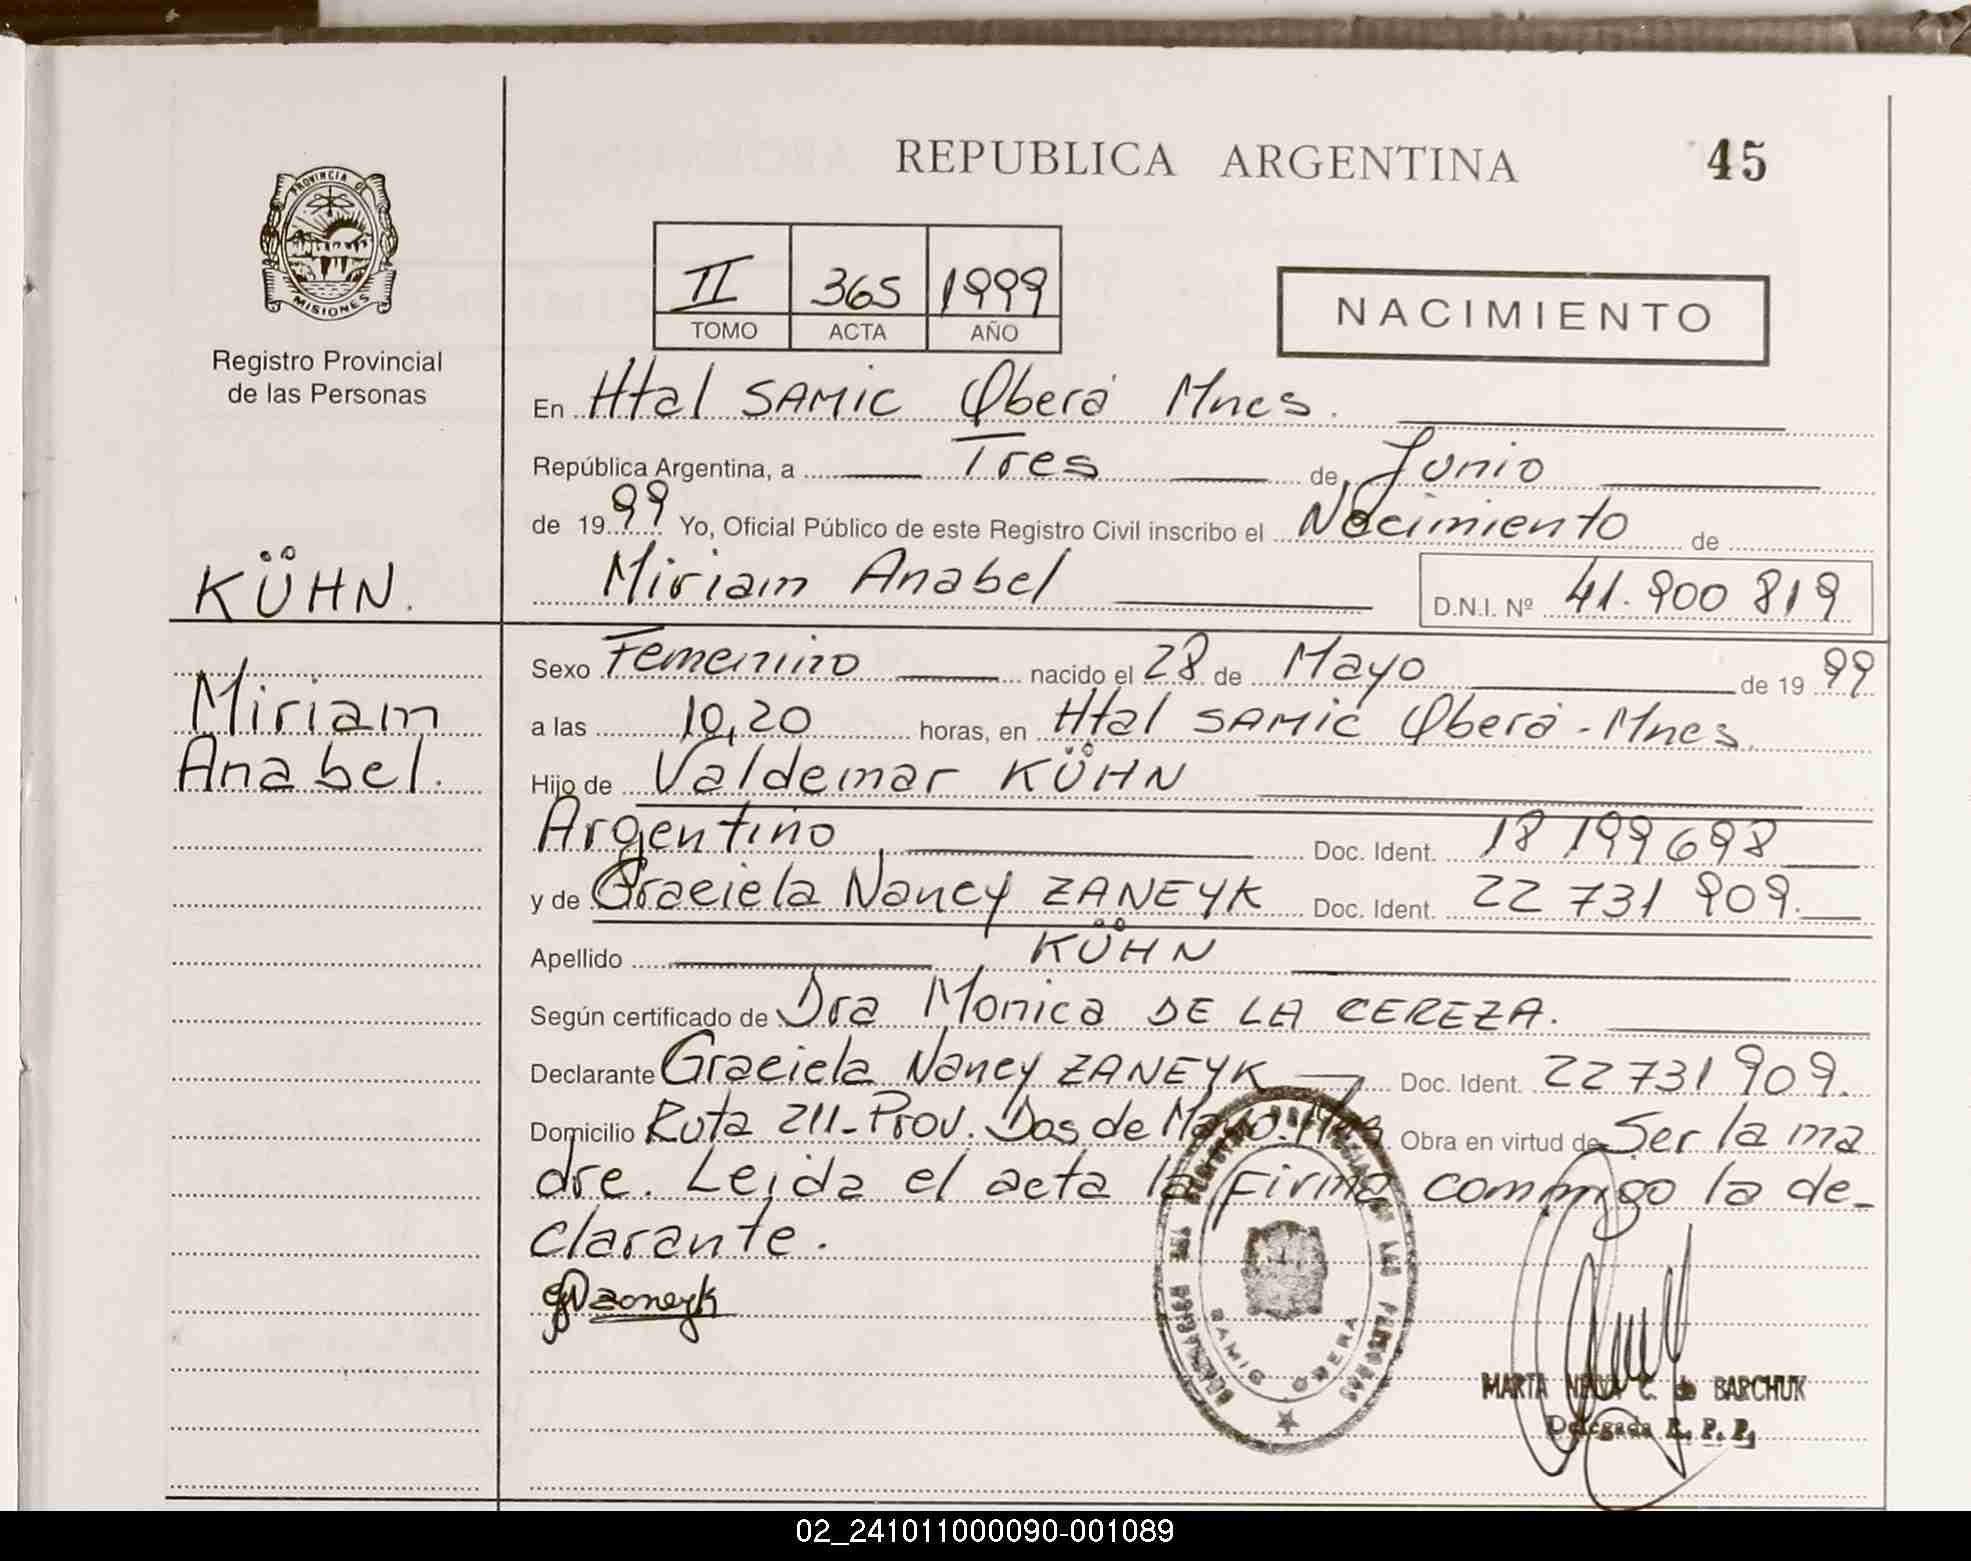 REPUBLICA ARGENTINA
45
PROVINCIA DE
MISIONES
Registro Provincial
de las Personas
II 365 1999
TOMO ACTA AÑO
NACIMIENTO
En Htal SAMIC Oberá Mnes.
República Argentina, a Tres de Junio
de 1999 Yo, Oficial Público de este Registro Civil inscribo el Nacimiento de
Miriam Anabel D.N.I. Nº 41.900 819
KÜHN.
Miriam
Anabel.
Sexo Femenino nacido el 28 de Mayo de 1999
a las 10,20 horas, en Htal SAMIC Oberá - Mnes.
Hijo de Valdemar KÜHN
Argentino Doc. Ident. 18 199 698
y de Graciela Nancy ZANEYK Doc. Ident. 22 731 909.
Apellido KÜHN
Según certificado de Dra Monica DE LA CEREZA.
Declarante Graciela Nancy ZANEYK Doc. Ident. 22 731 909.
Domicilio Ruta 211-Prov. Dos de Mayo. Mnes Obra en virtud de Ser la ma
dre. Leida el acta la firma conmigo la de-
clarante.
GNzaneyk
DE LAS PERSONAS
SAMIC OBERA
MARTA C. de BARCHUK
Delegada R. P. P.
02_241011000090-001089